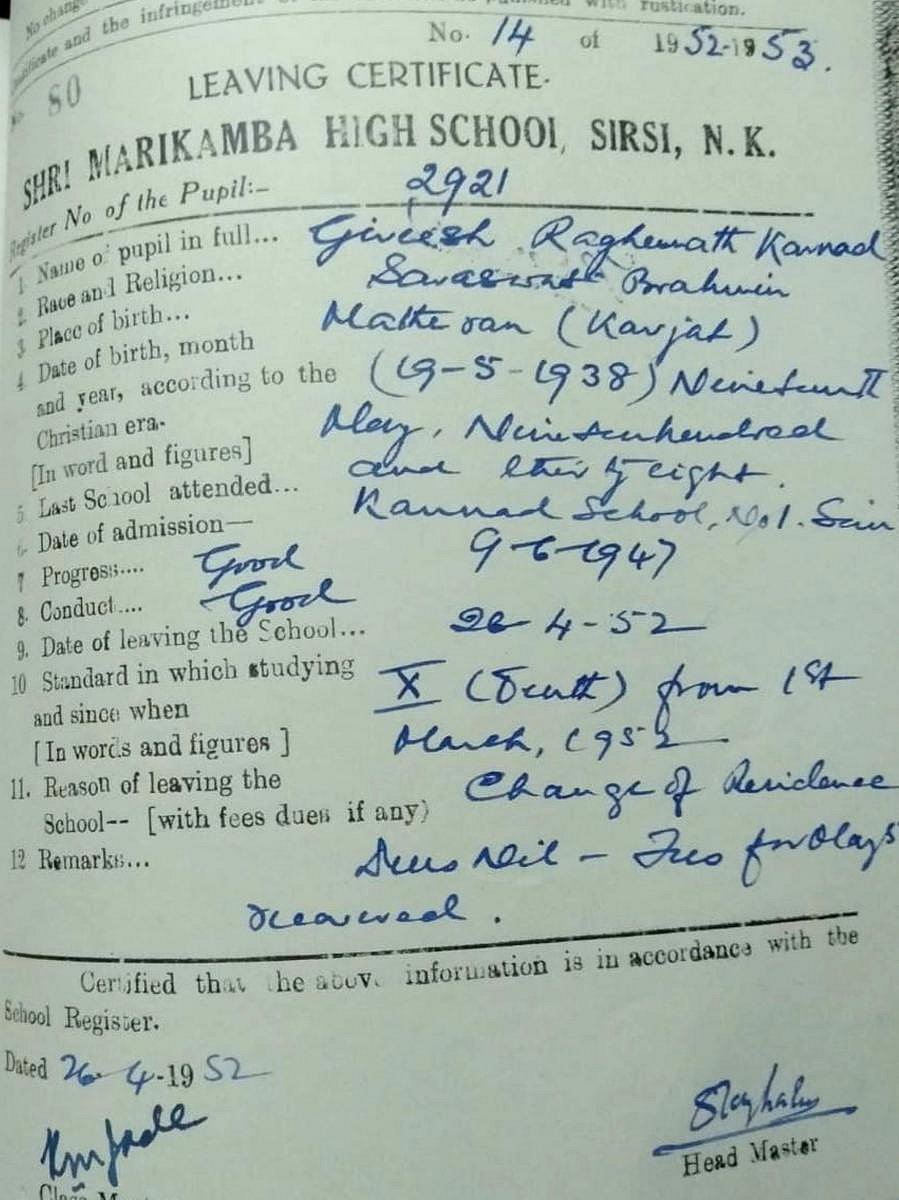 No change
and the infringement of with rustication.
No. 14 of 1952-1953.
No 80
LEAVING CERTIFICATE.
SHRI MARIKAMBA HIGH SCHOOL, SIRSI, N. K.
Register No of the Pupil:- 2921
1 Name of pupil in full... Gireesh Raghunath Karnad
2 Race and Religion... Saraswat Brahmin
3 Place of birth... Matheran (Karjat)
4 Date of birth, month
and year, according to the (19-5-1938) Nineteenth
Christian era. May, Nineteenhundred
[In word and figures] and thirty eight.
5 Last School attended... Kannad School, No 1.
6 Date of admission— 9-6-1947
7 Progress.... Good
8. Conduct.... Good
9. Date of leaving the School... 26-4-52
10 Standard in which studying
and since when X (Tenth) from 1st
[In words and figures ] March, 1952
11. Reason of leaving the
School-- [with fees dues if any) Change of Residence
12 Remarks... Dues Nil - Fees for May
recovered.
Certified that the above information is in accordance with the
School Register.
Dated 26-4-1952
Head Master